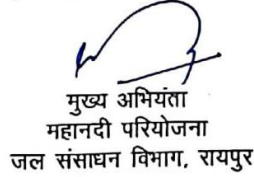 मुख्य अभियंता
महानदी परियोजना
जल संसाधन विभाग, रायपुर